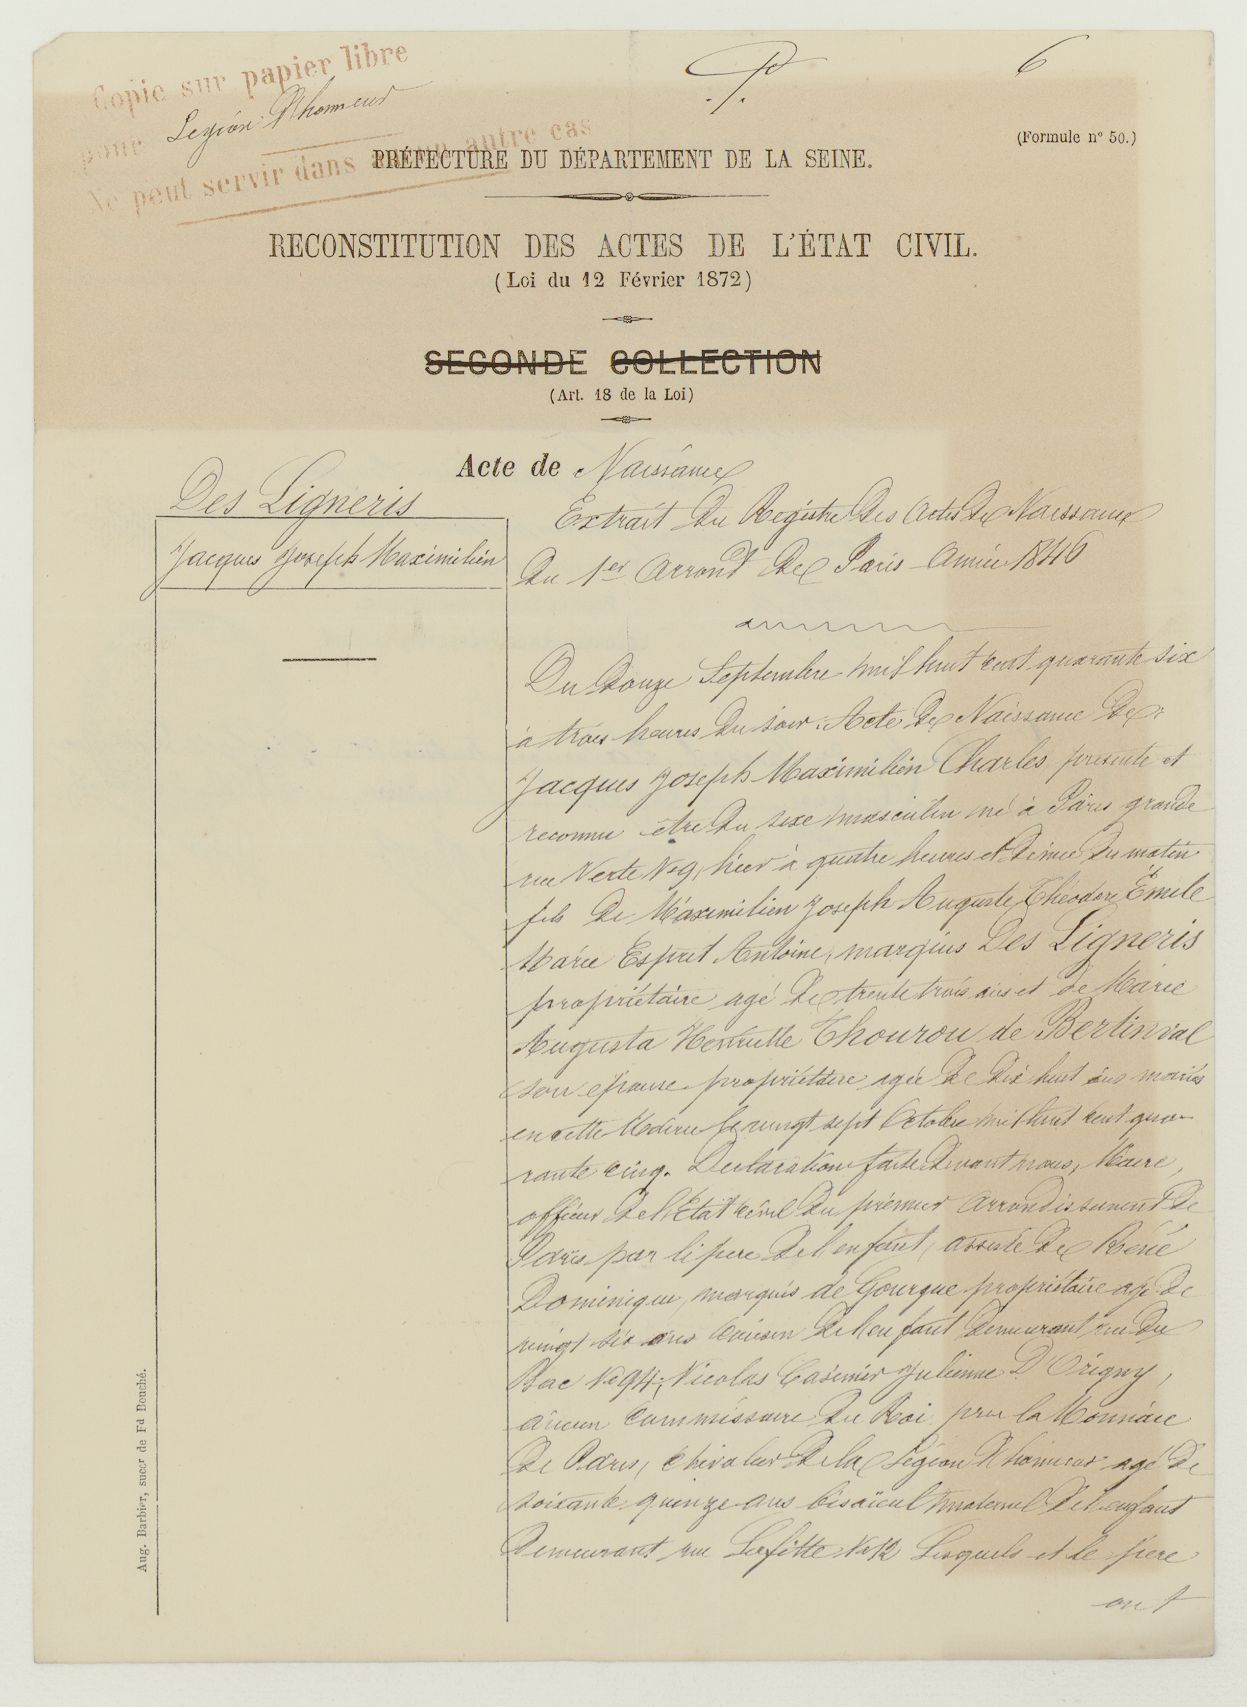 Copie sur papier libre
pour Légion d'honneur
Ne peut servir dans aucun autre cas
P.
6
(Formule n° 50.)
PRÉFECTURE DU DÉPARTEMENT DE LA SEINE.
RECONSTITUTION DES ACTES DE L'ÉTAT CIVIL.
(Loi du 12 Février 1872)
SECONDE COLLECTION
(Art. 18 de la Loi)
Acte de Naissance
Des Ligneris
Jacques Joseph Maximilien
Extrait du Registre des Actes de Naissance
du 1er Arrondt de Paris Année 1846
Du douze Septembre mil huit cent quarante six
à trois heures du soir. Acte de Naissance de
Jacques Joseph Maximilien Charles, présenté et
reconnu être du sexe masculin né à Paris grande
rue Verte No 9, hier à quatre heures et demie du matin
fils de Maximilien Joseph Auguste Théodore Émile
Marie Esprit Antoine, marquis Des Ligneris
propriétaire agé de trente trois ans et de Marie
Augusta Henriette Thourou de Bertinval
son épouse propriétaire agée de dix huit ans mariés
en cette Mairie le vingt sept Octobre mil huit cent qua-
rante cinq. Déclaration faite devant nous, Maire,
officier de l'État civil du premier arrondissement de
Paris par le père de l'enfant, assisté de René
Dominique, marquis de Gourgue propriétaire agé de
vingt six ans cousin de l'enfant demeurant rue du
Bac No 94, Nicolas Casimir Julienne D'Origny,
ancien commissaire du Roi pour la Monnaie
de Paris, chevalier de la Légion d'honneur agé de
soixante quinze ans bisaïeul maternel de l'enfant
demeurant rue Lafitte No 12 Lesquels et le père
ont
Aug. Barbier, succr de Fd Douché.